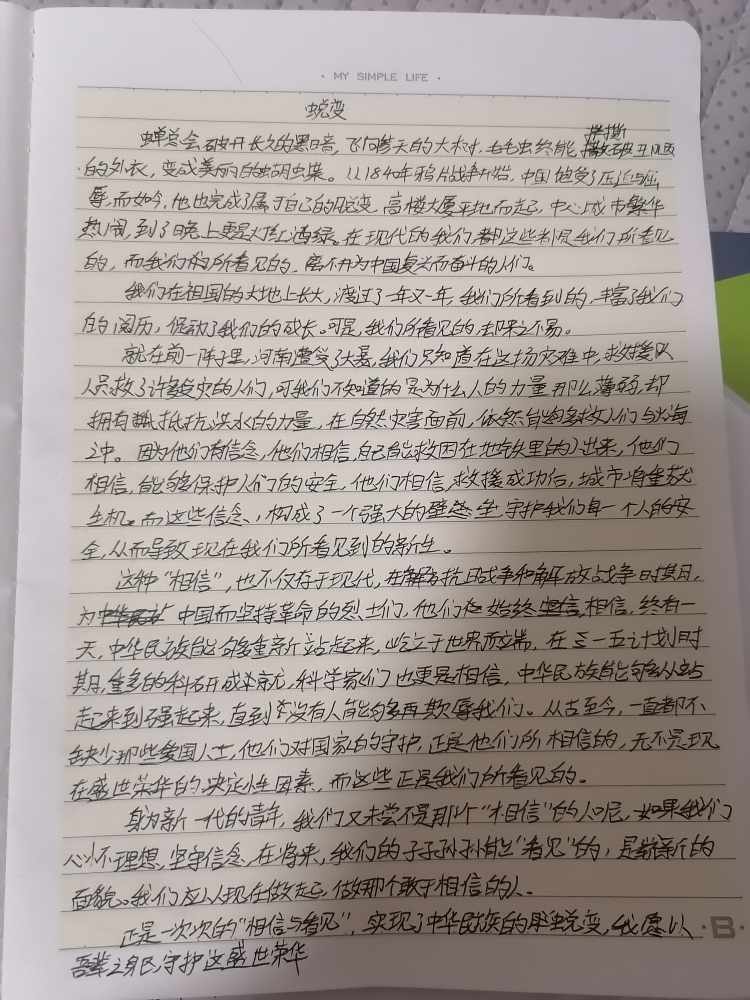 · MY SIMPLE LIFE ·
蜕变
蝉总会破开长久的黑暗，飞向参天的大树，毛毛虫终能撕破丑陋
的外衣，变成美丽的蝴蝶。从1840年鸦片战争开始，中国饱受了压迫与屈
辱，而如今，他也完成了属于自己的蜕变，高楼大厦平地而起，中心城市繁华
热闹，到了晚上更是灯红酒绿。在现代的我们，都这些都是我们所看见
的，而我们的所看见的，离不开为中国复兴而奋斗的人们。
我们在祖国的大地上长大，渡过了一年又一年，我们所看到的，丰富了我们
的阅历，促动了我们的成长。可是，我们所看见的，却来之不易。
就在前一阵子里，河南遭受了大暴，我们只知道在这场灾难中，救援队
人员救了许多受灾的人们，可我们不知道的是为什么人的力量那么薄弱，却
拥有抵抗洪水的力量，在自然灾害面前，依然能够救人们与水海
之中。因为他们有信念，他们相信，自己能救困在地铁里的人出来，他们
相信，能够保护人们的安全，他们相信，救援成功后，城市将重获
生机。而这些信念，构成了一个强大的壁垒，守护我们每一个人的安
全，从而导致现在我们所看见到的新生。
这种“相信”，也不仅存于现代，在抗日战争和解放战争时期，
为中国而坚持革命的烈士们，他们始终相信，终有一
天，中华民族能够重新站起来，屹立于世界顶端，在三一五计划时
期，重多的科研成就，科学家们也更是相信，中华民族能够从站
起来到强起来，直到没有人能够再欺辱我们。从古至今，一直都不
缺少那些爱国人士，他们对国家的守护，正是他们所相信的，无不是现
在盛世荣华的决定性因素，而这些正是我们所看见的。
身为新一代的青年，我们又未尝不是那个“相信”的人呢，如果我们
心怀理想，坚守信念，在将来，我们的子子孙孙能“看见”的，是崭新的
面貌。我们应从现在做起，做那个敢于相信的人。
正是一次次的“相信与看见”，实现了中华民族的蜕变，我愿以
吾辈之身，守护这盛世荣华
·B·